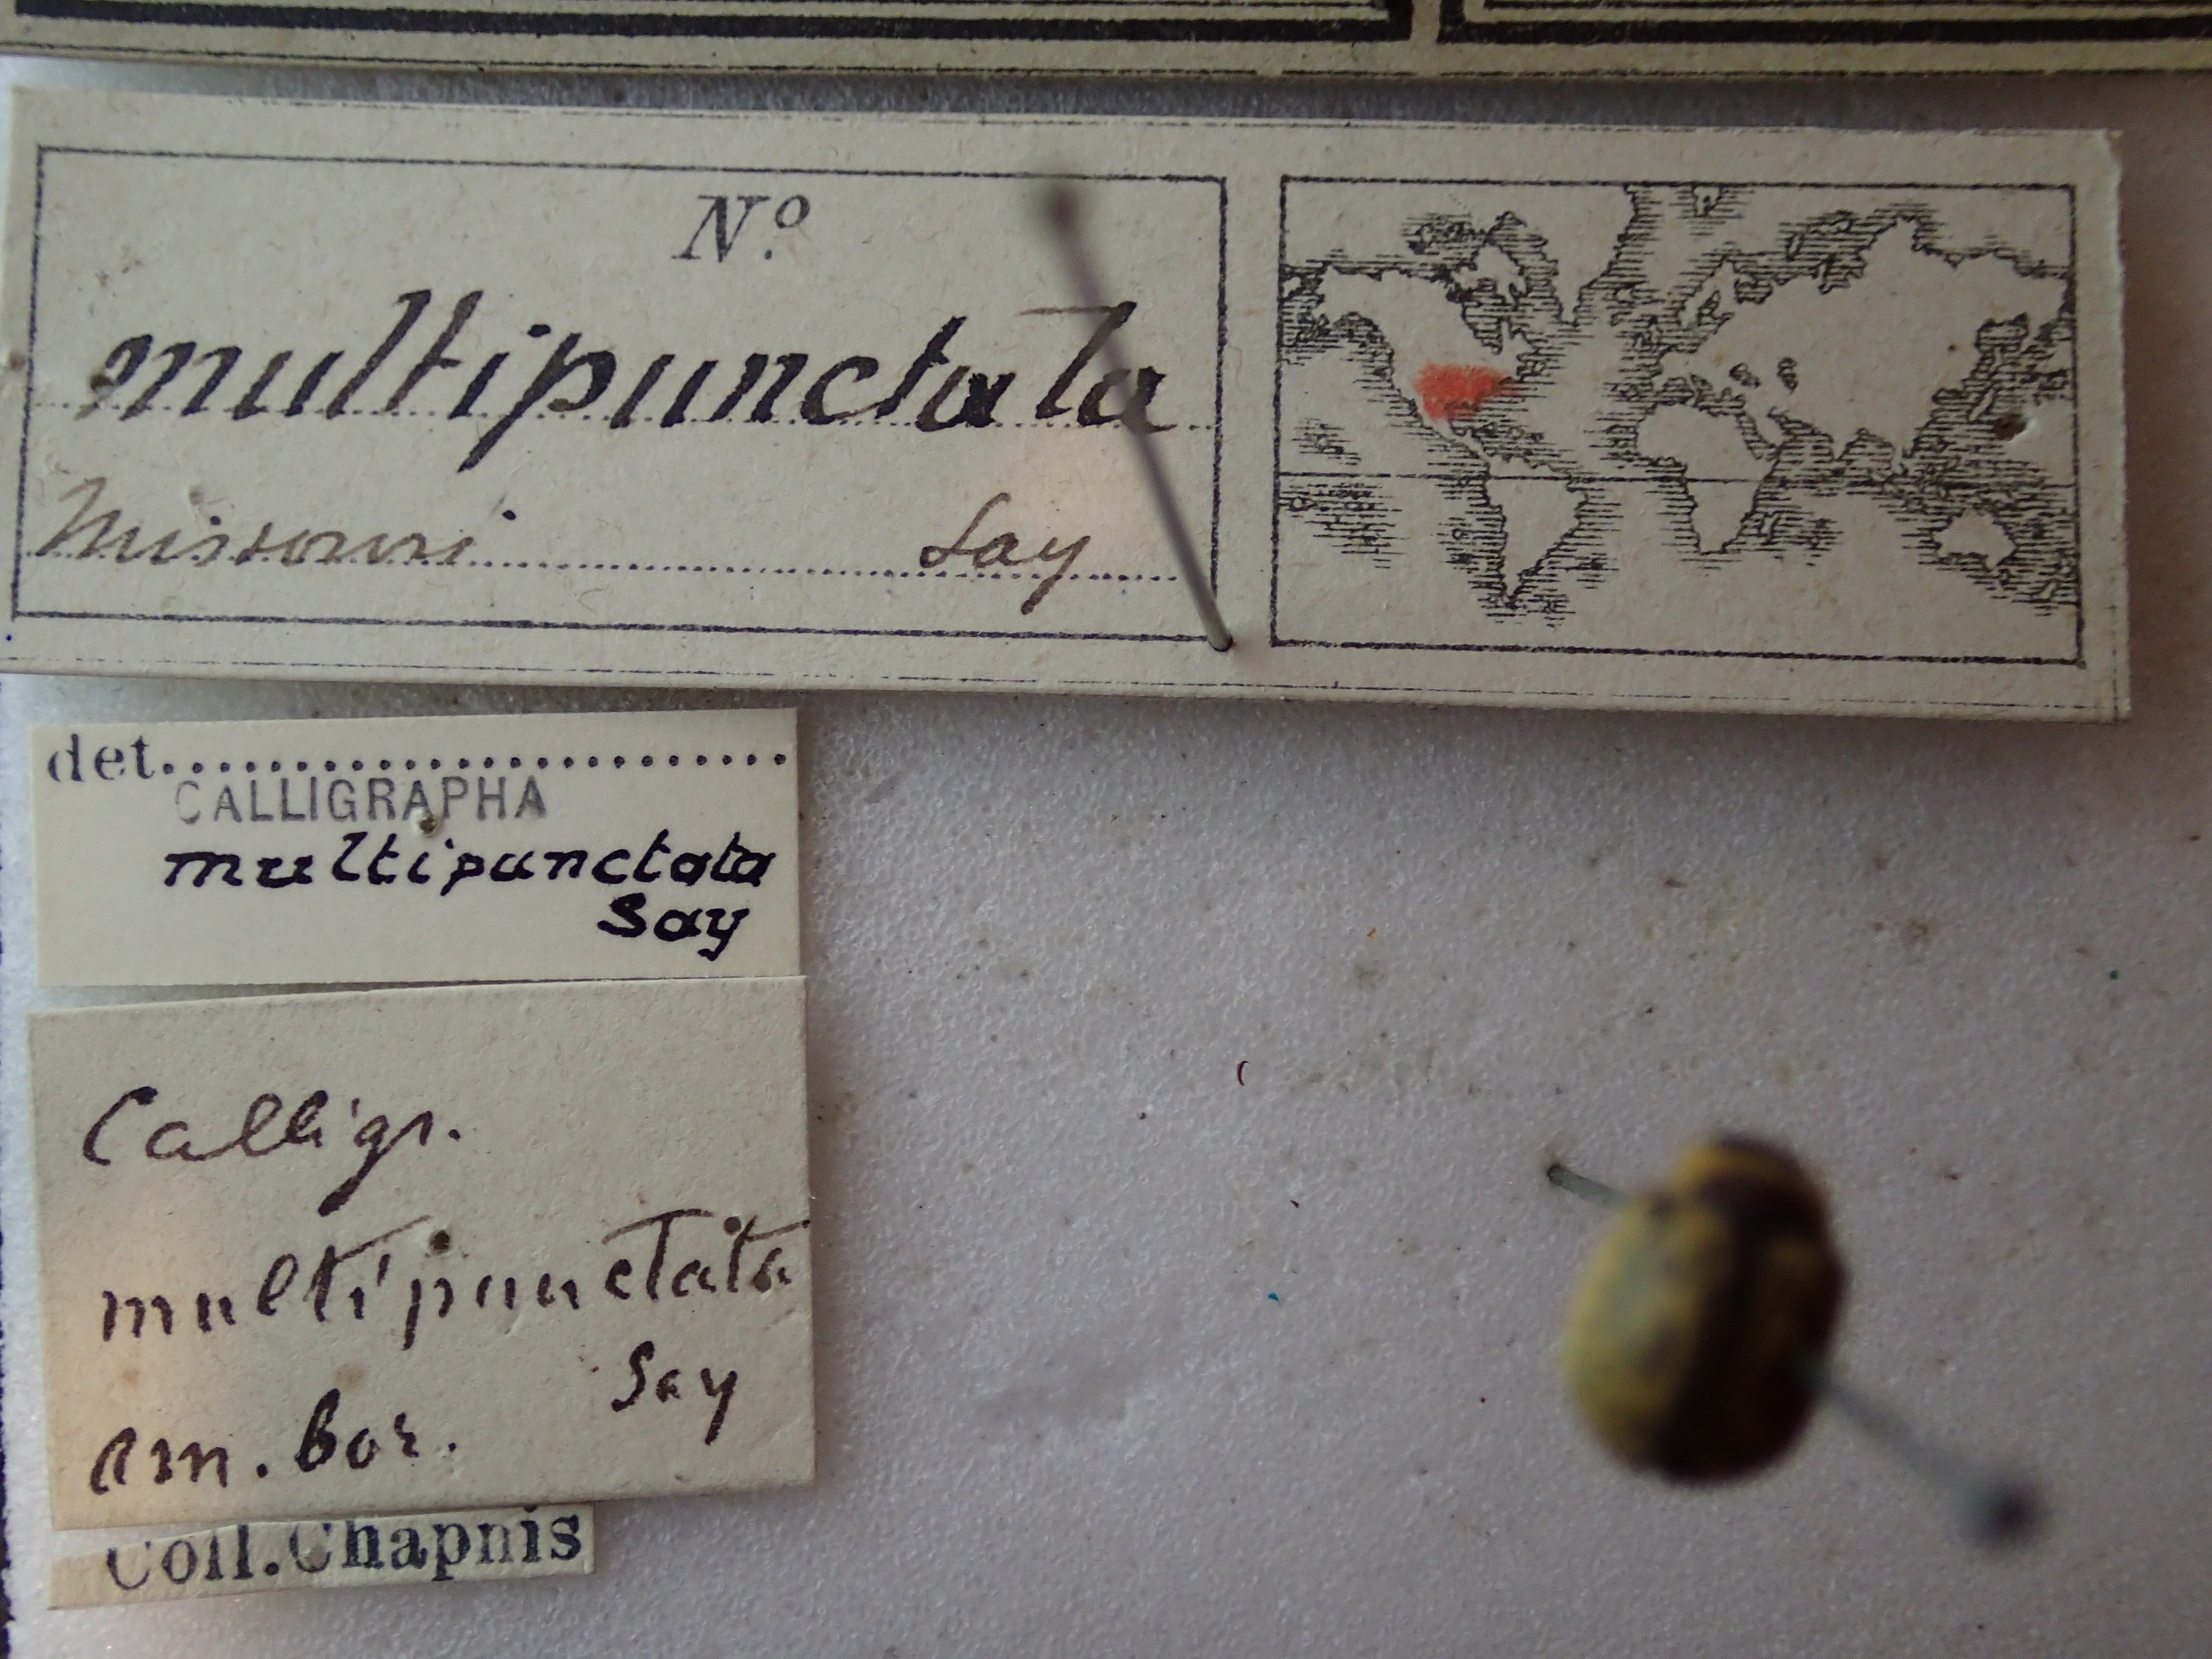 N.o
multipunctata
Missouri Say
det..........................
CALLIGRAPHA
multipunctata
Say
Calligr.
multipunctata
Say
Am. bor.
Coll. Chapuis